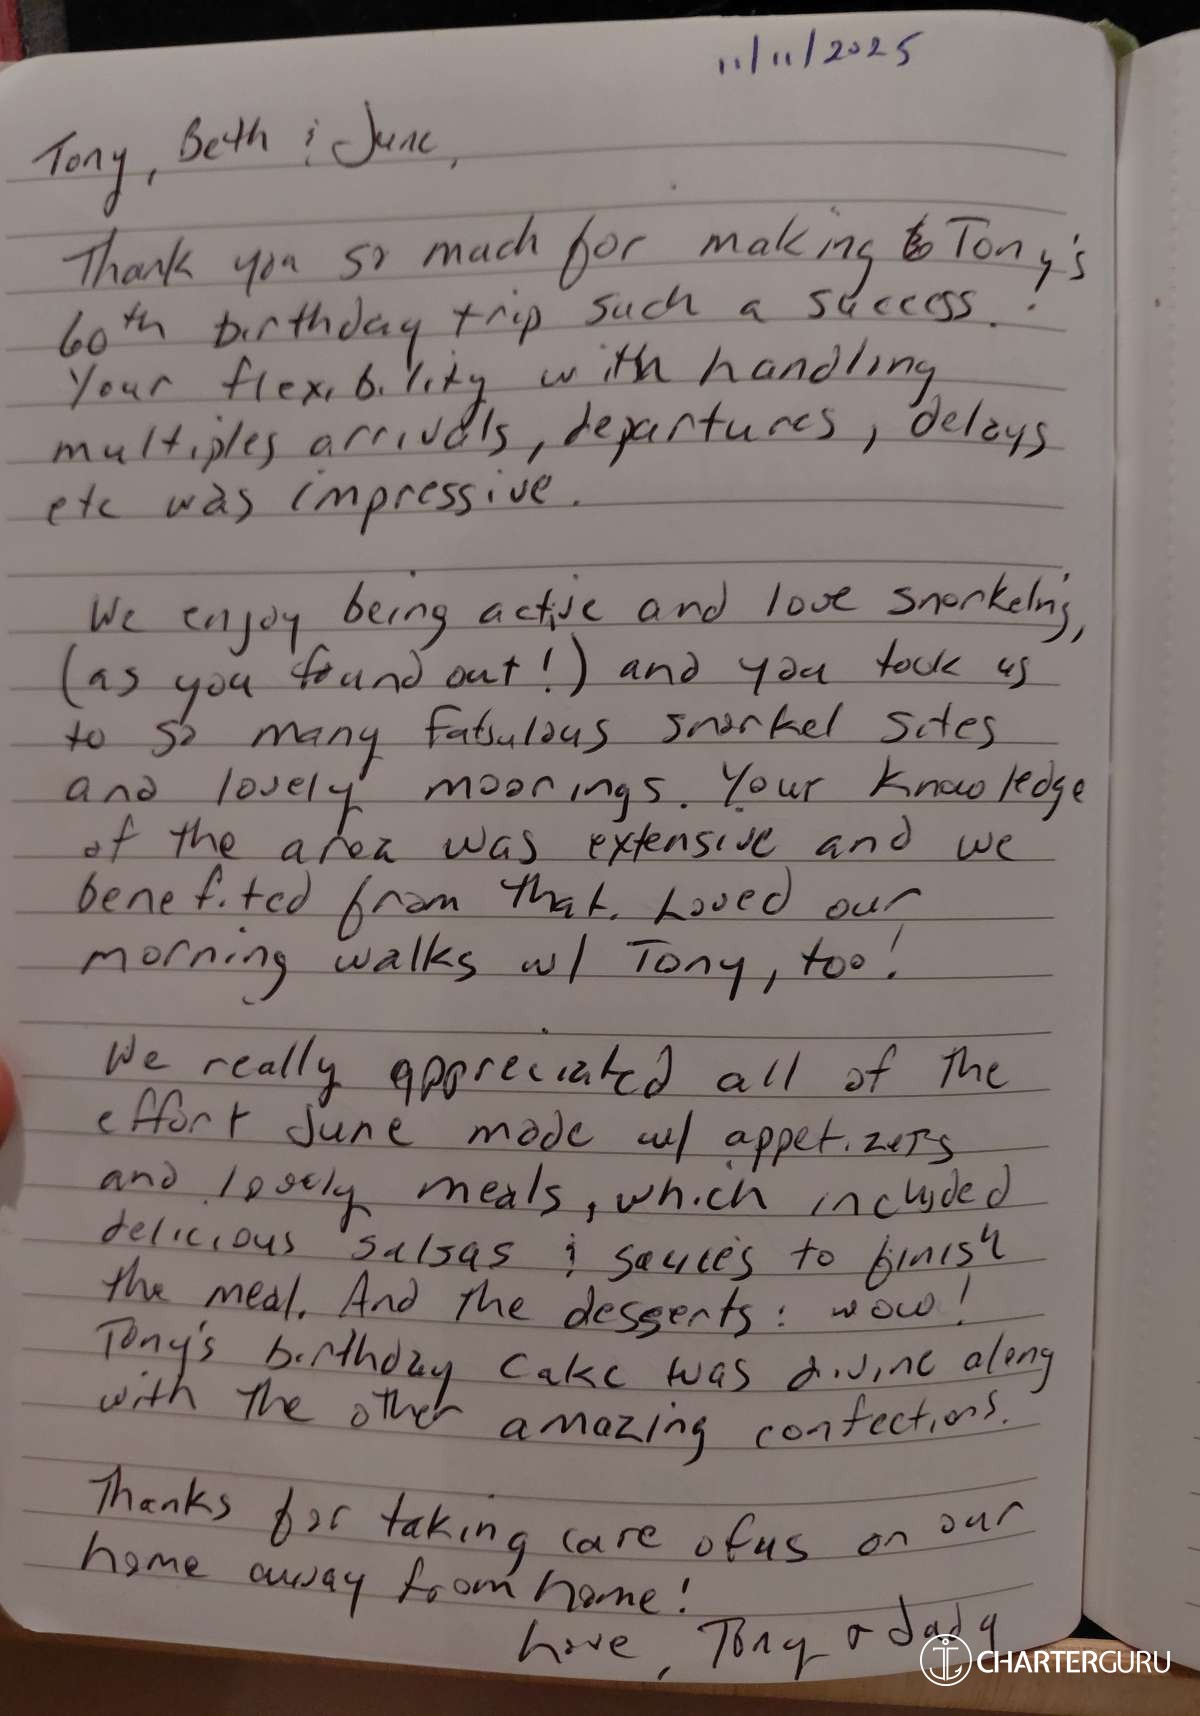 11/11/2025
Tony, Beth & June,
Thank you so much for making Tony's
60th birthday trip such a success.
Your flexibility with handling
multiples arrivals, departures, delays
etc was impressive.
We enjoy being active and love snorkeling,
(as you found out!) and you took us
to so many fabulous snorkel sites
and lovely moorings. Your knowledge
of the area was extensive and we
benefited from that. Loved our
morning walks w/ Tony, too!
We really appreciated all of the
effort June made w/ appetizers
and lovely meals, which included
delicious salsas & sauces to finish
the meal. And the desserts: wow!
Tony's birthday cake was divine along
with the other amazing confections.
Thanks for taking care of us on our
home away from home!
Love, Tony &
CHARTERGURU